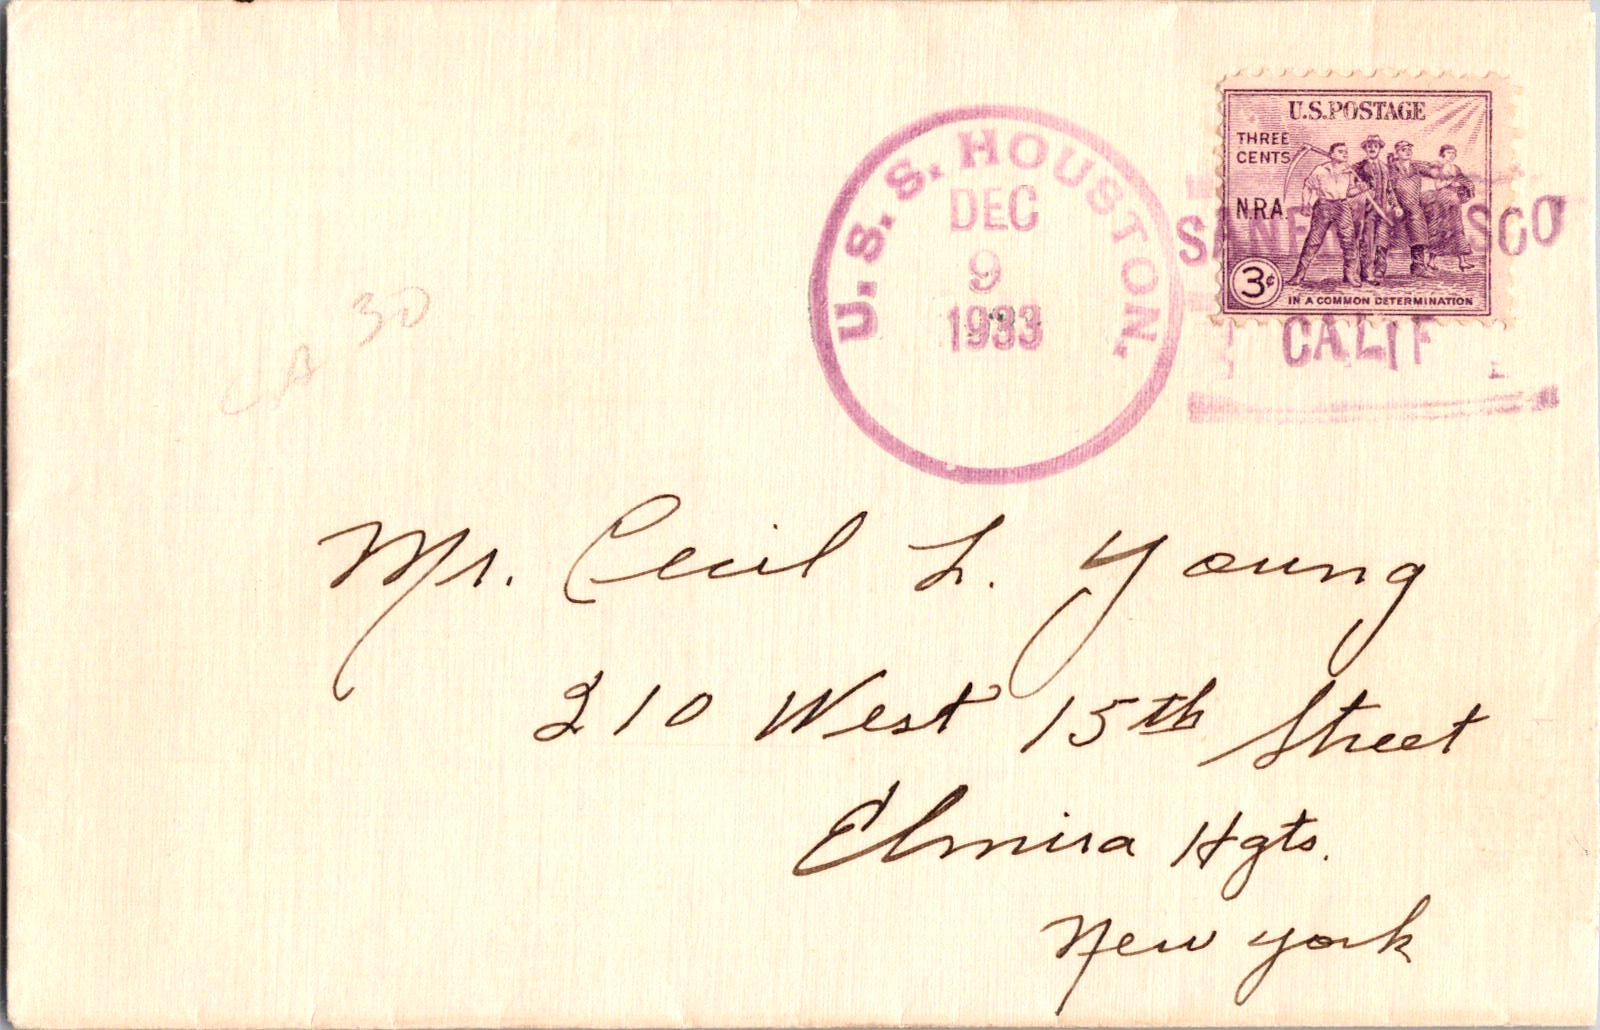 U.S. POSTAGE
THREE
CENTS
N.R.A.
3¢
IN A COMMON DETERMINATION
U. S. S. HOUSTON.
DEC
9
1933
SAN FRANCISCO
CALIF
30
Mr. Cecil L. Young
210 West 15th Street
Elmira Hgts.
New York